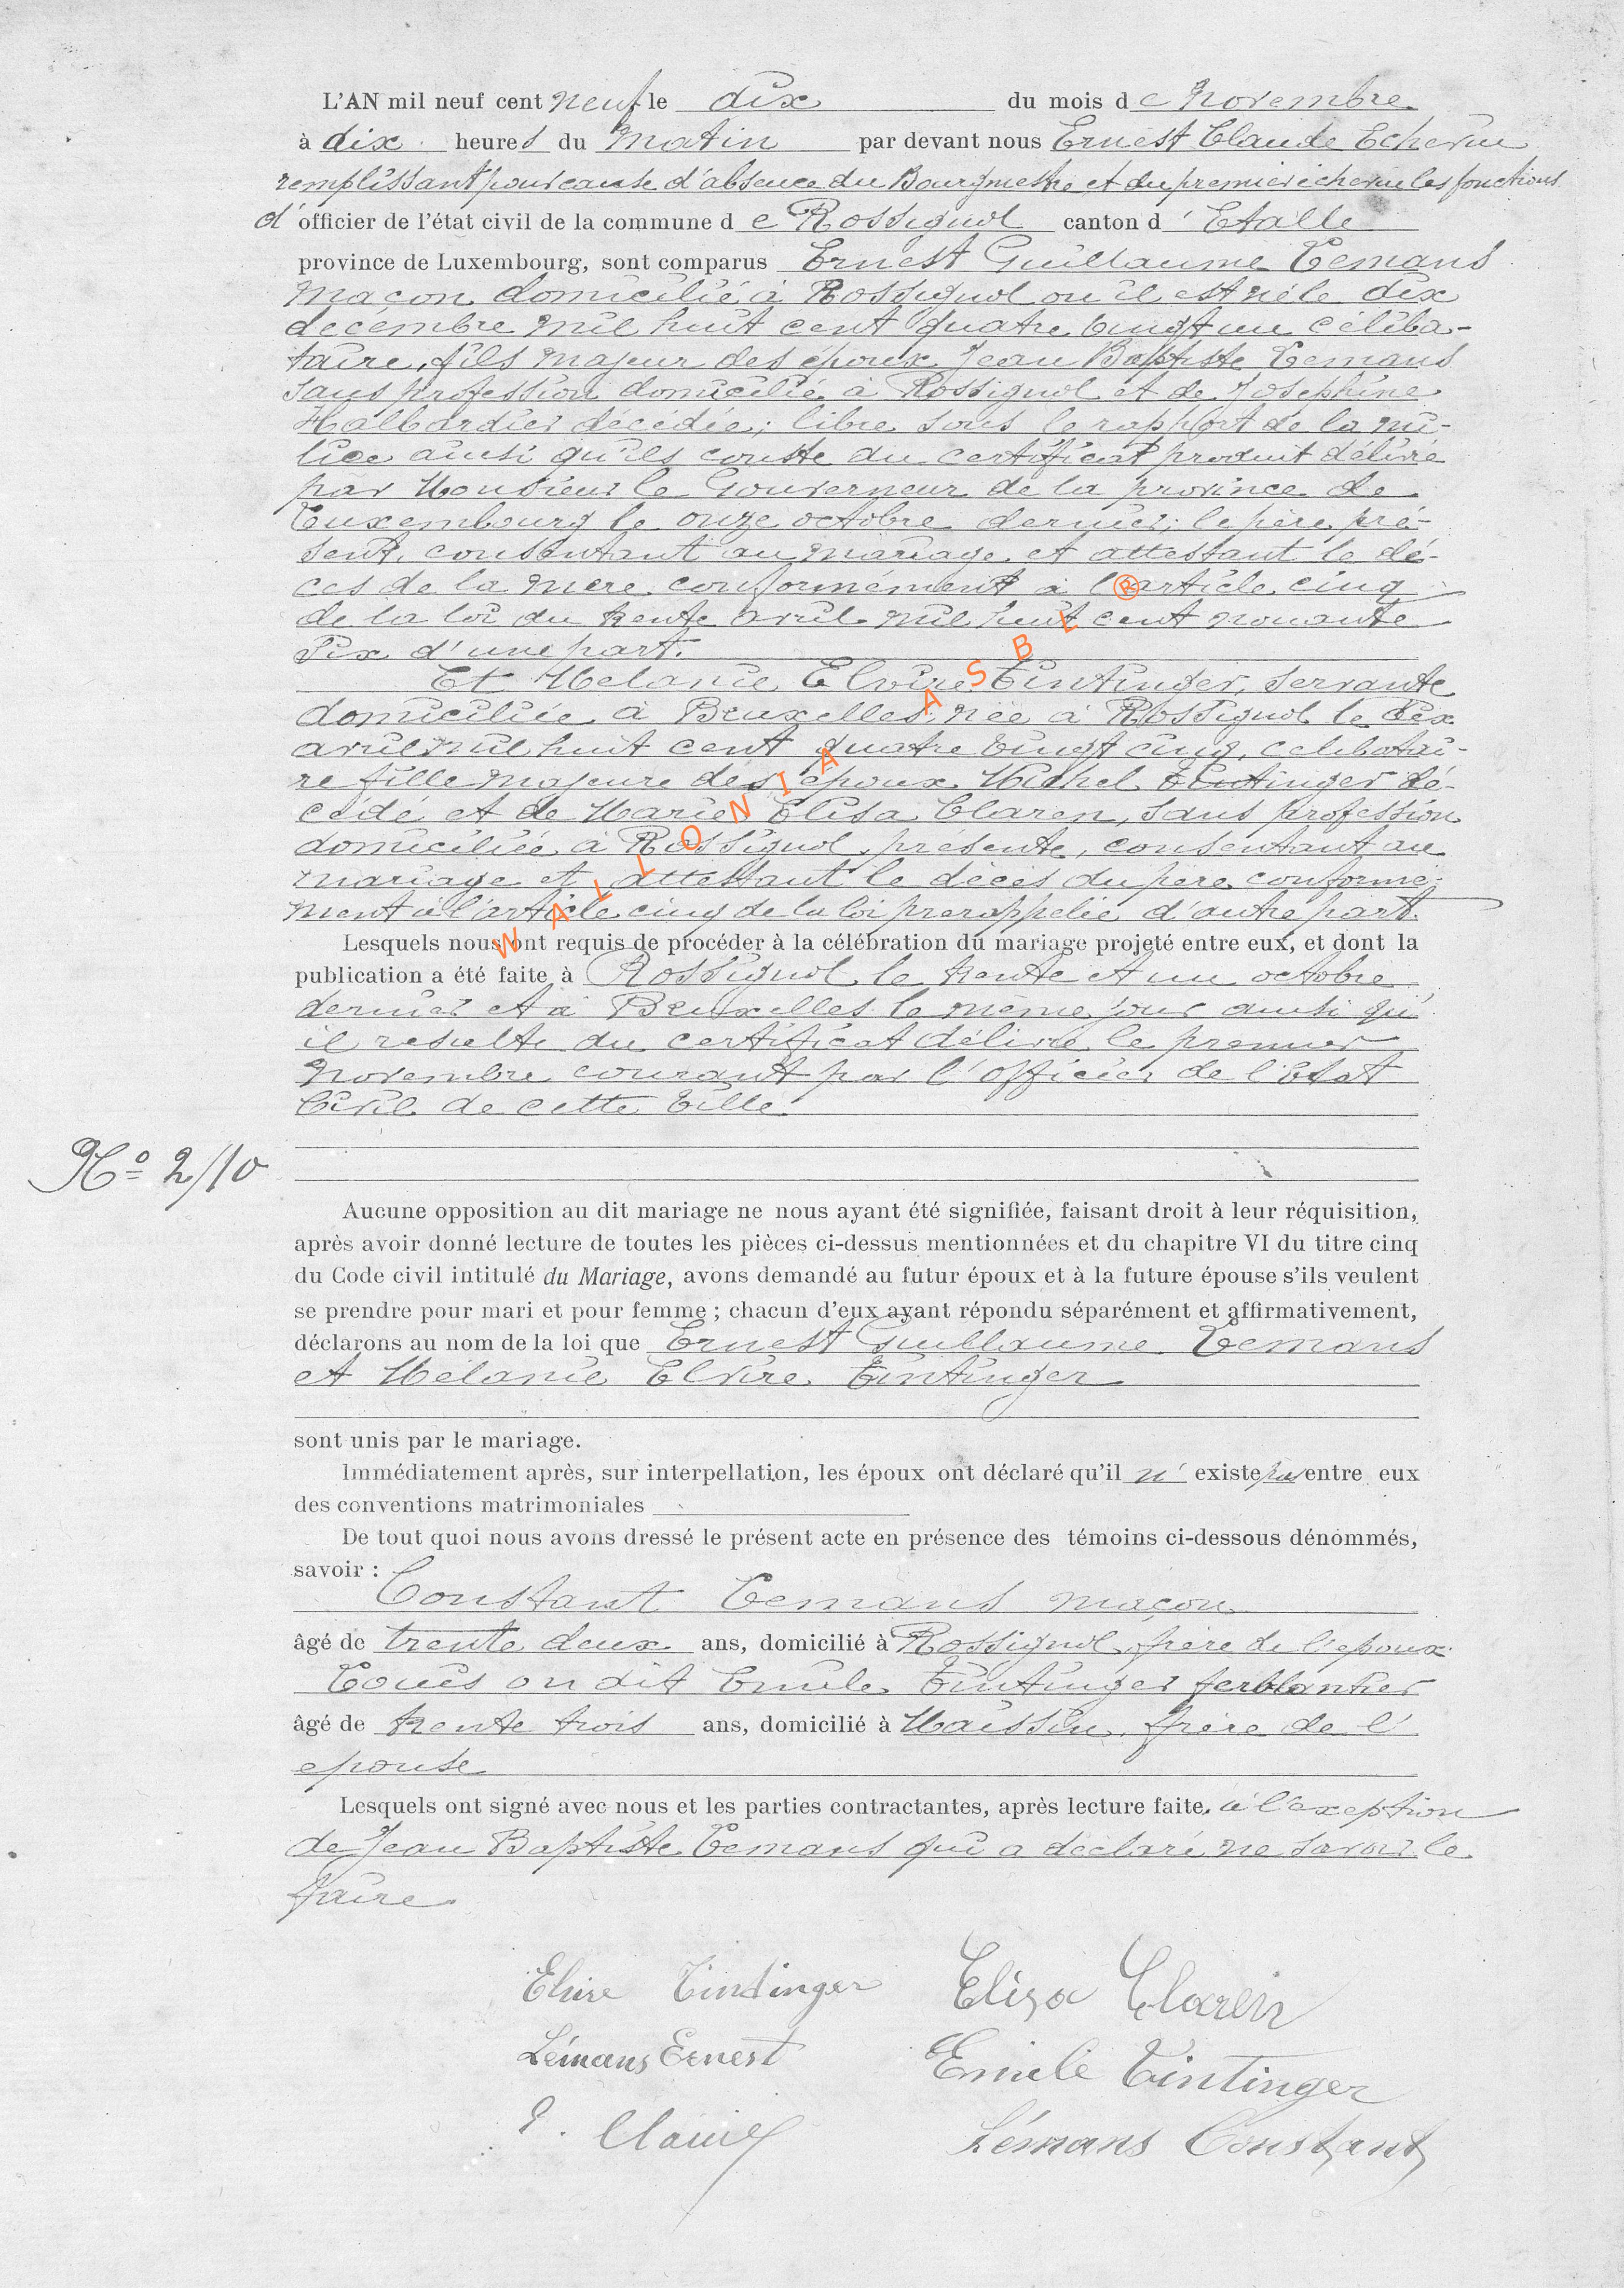 L'AN mil neuf cent neuf le dix du mois de Novembre
à dix heures du Matin par devant nous Ernest Claude Echevin
remplissant pour cause d'absence du Bourgmestre et du premier echevin les fonctions
d'officier de l'état civil de la commune de Rossignol canton d'Etalle
province de Luxembourg, sont comparus Ernest Guillaume Lemans
Maçon domicilié à Rossignol ou il est né le dix
decembre mil huit cent quatre vingt un céliba-
taire, fils majeur des époux Jean Baptiste Lemans
sans profession domicilié à Rossignol et de Josephine
Halbardier décédée; libre sous le rapport de la mi-
lice ainsi qu'ils conste du certificat produit délivré
par Monsieur le Gouverneur de la province de
Luxembourg le onze octobre dernier; le père pré-
sent, consentant au mariage et attestant le dé-
ces de la mère conformément à l'article cinq
de la loi du trente avril mil huit cent nonante
six d'une part.
Et Melanie Elvire Tintinger, servante
domiciliée à Bruxelles, née à Rossignol le dix
avril mil huit cent quatre vingt cinq, celibatai-
re fille majeure des époux Michel Tintinger dé-
cédé et de Marie Elisa Claren, sans profession
domiciliée à Rossignol, présente, consentant au
mariage et attestant le décès du père conformé-
ment à l'article cinq de la loi prerappelée d'autre part.
Lesquels nous ont requis de procéder à la célébration du mariage projeté entre eux, et dont la
publication a été faite à Rossignol le trente et un octobre
dernier et à Bruxelles le même jour ainsi qu'
il resulte du certificat délivré le premier
Novembre courant par l'officier de l'Etat
Civil de cette Ville.
No 2/10
Aucune opposition au dit mariage ne nous ayant été signifiée, faisant droit à leur réquisition,
après avoir donné lecture de toutes les pièces ci-dessus mentionnées et du chapitre VI du titre cinq
du Code civil intitulé du Mariage, avons demandé au futur époux et à la future épouse s'ils veulent
se prendre pour mari et pour femme ; chacun d'eux ayant répondu séparément et affirmativement,
déclarons au nom de la loi que Ernest Guillaume Lemans
et Mélanie Elvire Tintinger
sont unis par le mariage.
Immédiatement après, sur interpellation, les époux ont déclaré qu'il n'existe pas entre eux
des conventions matrimoniales
De tout quoi nous avons dressé le présent acte en présence des témoins ci-dessous dénommés,
savoir :
Constant Lemans maçon
âgé de trente deux ans, domicilié à Rossignol, frère de l'epoux
Louis on dit Emile Tintinger ferblantier
âgé de trente trois ans, domicilié à Maissin, frère de l'
epouse
Lesquels ont signé avec nous et les parties contractantes, après lecture faite, à l'exception
de Jean Baptiste Lemans qui a déclaré ne savoir le
faire
Elvire Tintinger Elisa Claren
Lémans Ernest Emile Tintinger
E. Claude Lémans Constant
WALLONIA ASBL ®